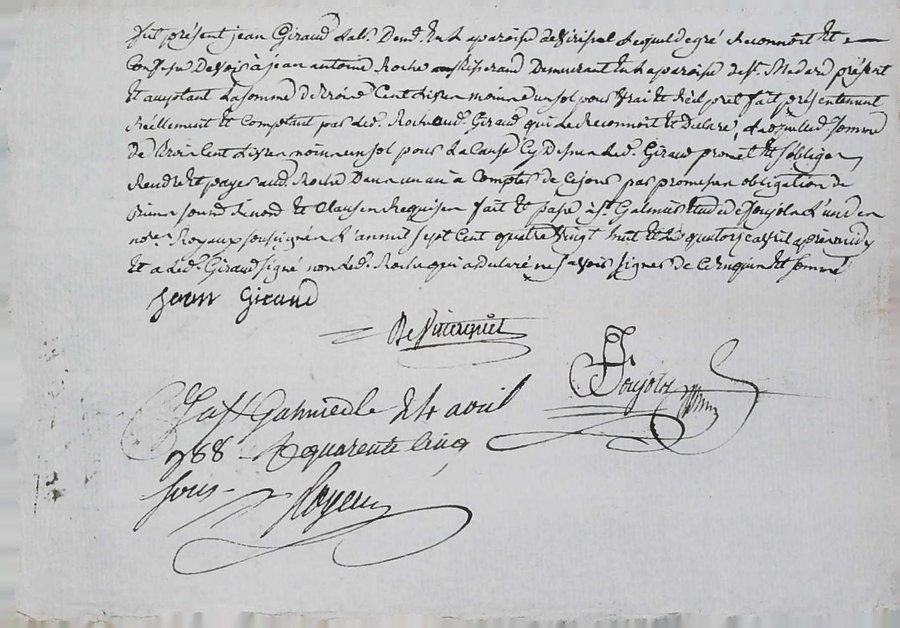 fut présent jean Giraud dem.t en la paroisse de Virisel lequel de gré Reconnoit Et
Confesse Devoir à jean antoine Roche Demeurant En la paroisse de St. Medard présent
Et acceptant La somme de Trois Cent Livres moins un sol pour vrai Et Réel prêt fait présentement
Reellement Et Comptant par led. Roche aud. Giraud qui Le Reconnoit Et Declare, laquelle d. somme
De trois Cent Livres moins un sol pour La Cause Cy Dessus Led. Giraud promet Et s'oblige
Rendre Et payer aud. Roche Dans un an à Compter de Ce jour par promesse obligation de
Biens soumd. Renond Et Clauses Requises fait Et passé à St. Galmier Etude Poujols L'un des
nores. Royaux soussignés L'année sept Cent quatre vingt huit Et Le quatorze avril après midy
Et a Led. Giraud signé non Led. Roche qui a Declaré ne savoir signer de Ce Enquis Et sommé
jean Giraud
Poujols
Galmier le 24 avril
788 quarente Cinq
sous